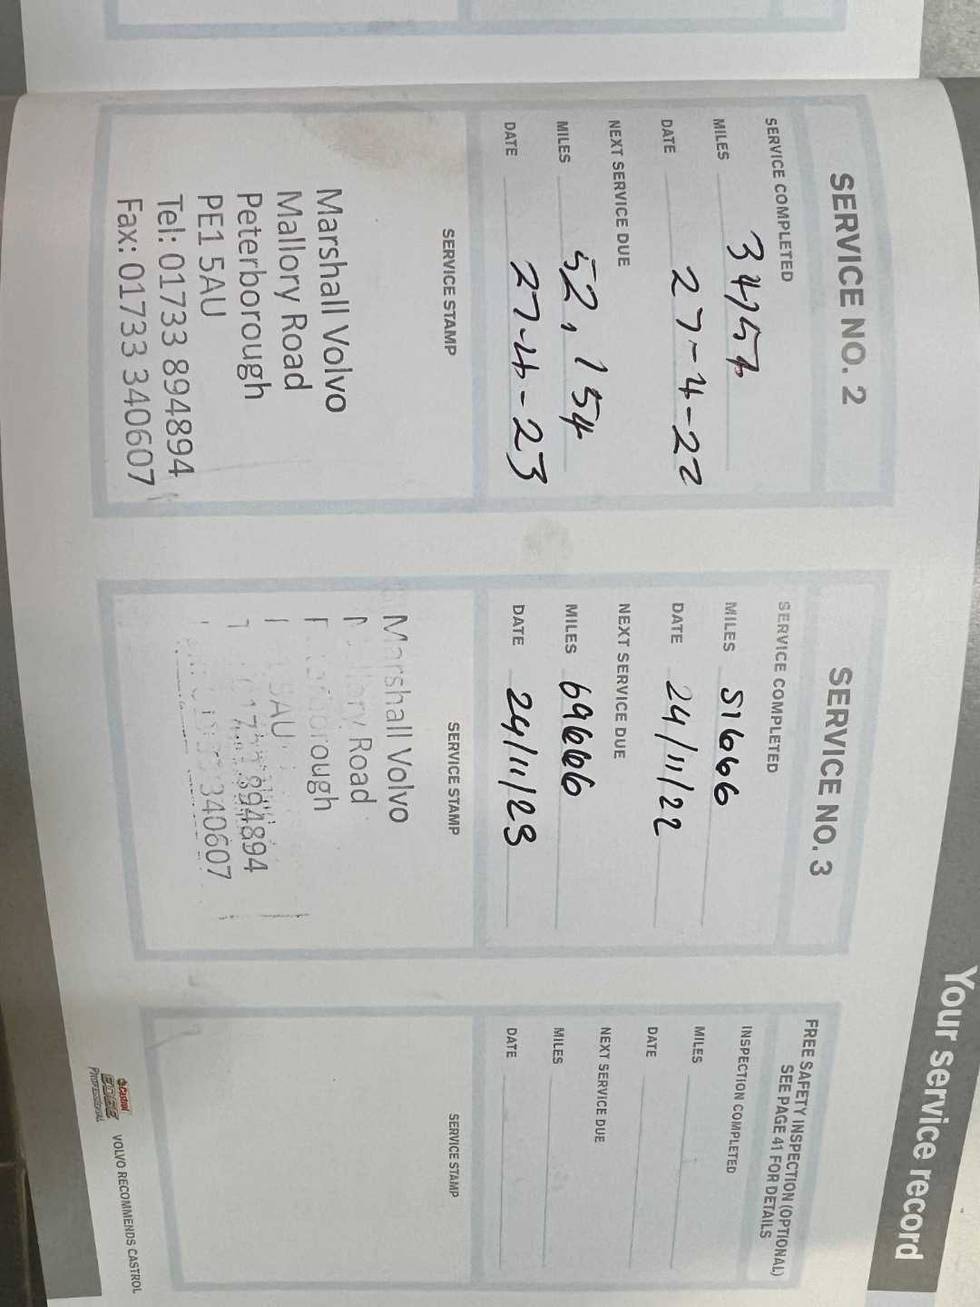 Your service record
SERVICE NO. 2
SERVICE COMPLETED
MILES 34154
DATE 27-4-22
NEXT SERVICE DUE
MILES 52,154
DATE 27-4-23
SERVICE STAMP
Marshall Volvo
Mallory Road
Peterborough
PE1 5AU
Tel: 01733 894894
Fax: 01733 340607
SERVICE NO. 3
SERVICE COMPLETED
MILES 51666
DATE 24/11/22
NEXT SERVICE DUE
MILES 69666
DATE 24/11/23
SERVICE STAMP
Marshall Volvo
Road
5AU
894894
340607
FREE SAFETY INSPECTION (OPTIONAL)
SEE PAGE 41 FOR DETAILS
INSPECTION COMPLETED
MILES
DATE
NEXT SERVICE DUE
MILES
DATE
SERVICE STAMP
Castrol
EDGE
PROFESSIONAL
VOLVO RECOMMENDS CASTROL